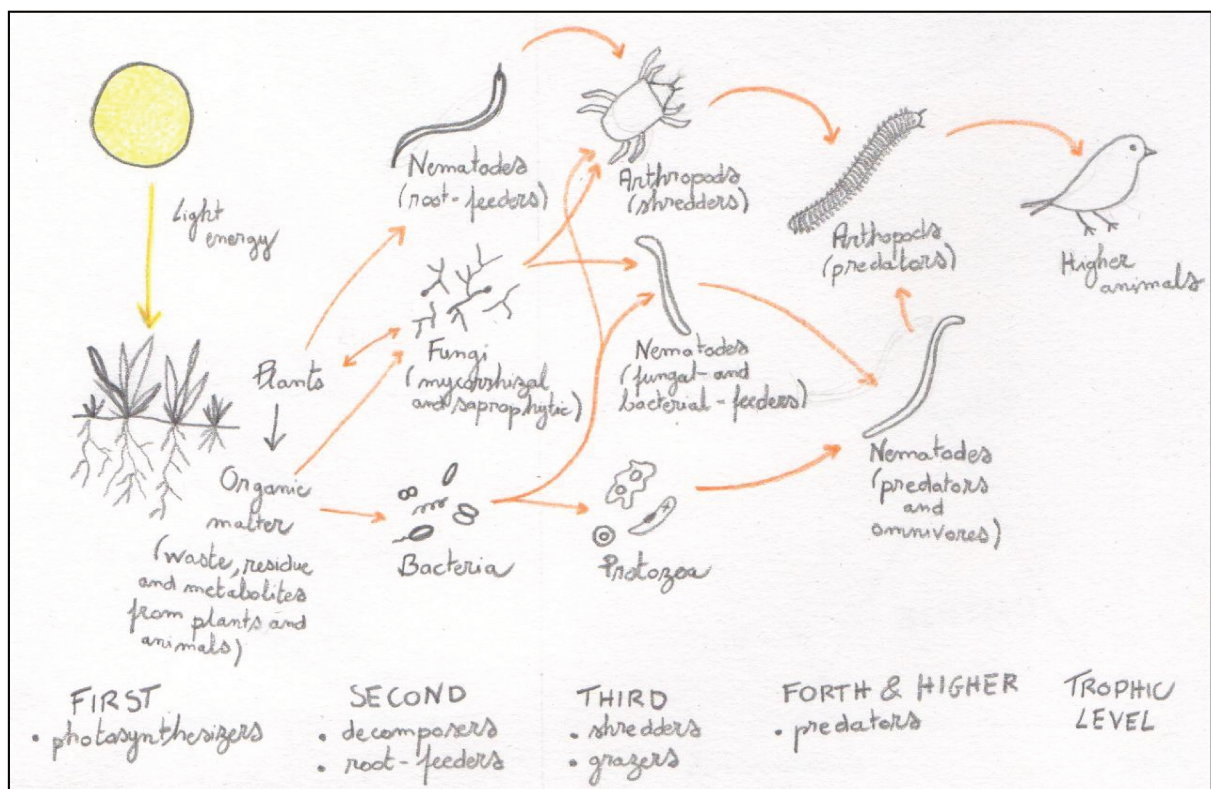 Light
energy
Plants
Organic
matter
(waste, residue
and metabolites
from plants and
animals)
Nematodes
(root-feeders)
Fungi
(mycorrhizal
and saprophytic)
Bacteria
Arthropods
(shredders)
Nematodes
(fungal- and
bacterial-feeders)
Protozoa
Arthopods
(predators)
Nematodes
(predators
and
omnivores)
Higher
animals
FIRST
• photosynthesizers
SECOND
• decomposers
• root-feeders
THIRD
• shredders
• grazers
FORTH & HIGHER
• predators
TROPHIC
LEVEL